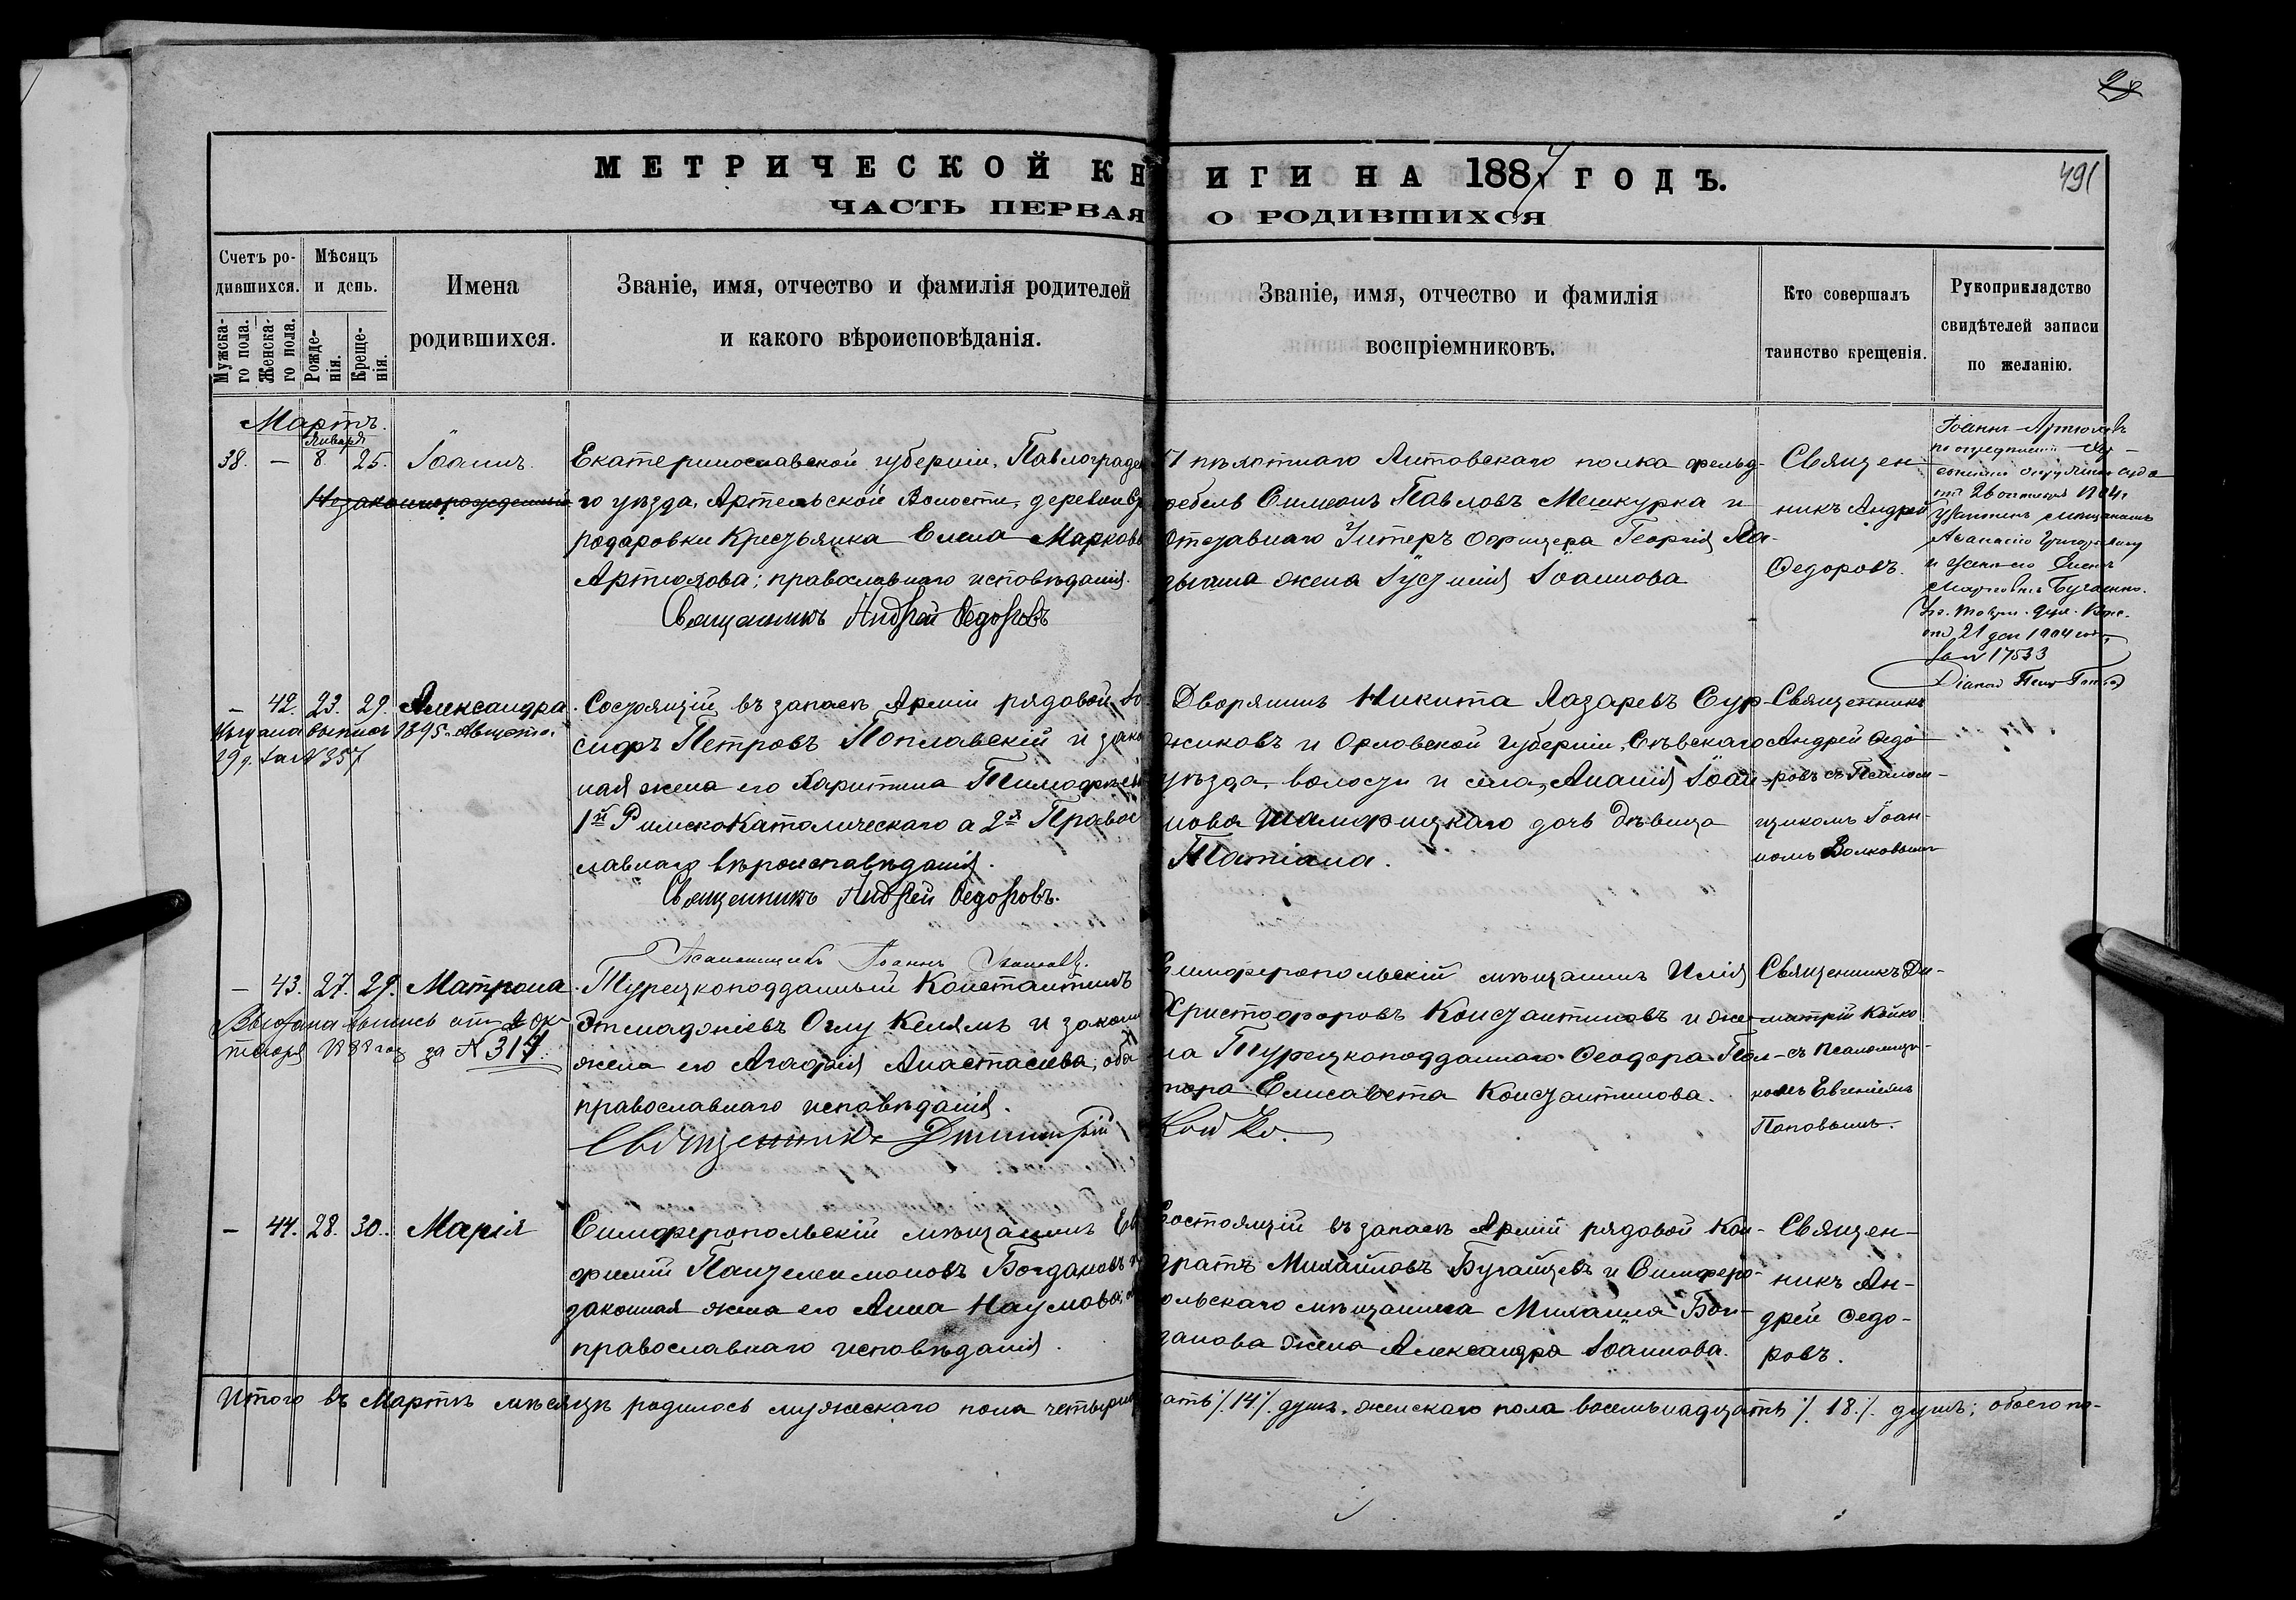 28
МЕТРИЧЕСКОЙ КНИГИ НА 1887 ГОДЪ.
491
ЧАСТЬ ПЕРВАЯ О РОДИВШИХСЯ
Счетъ ро-
дившихся.
Мужска-
го пола.
Женска-
го пола.
Мѣсяцъ
и день.
Рожде-
нія.
Креще-
нія.
Имена
родившихся.
Званіе, имя, отчество и фамилія родителей
и какого вѣроисповѣданія.
Званіе, имя, отчество и фамилія
воспріемниковъ.
Кто совершалъ
таинство крещенія.
Рукоприкладство
свидѣтелей записи
по желанію.
Мартъ.
Января
38. — 8 25. Іоаннъ.
Незаконнорожденный
Екатеринославской губерніи, Павлоград
го уѣзда, Артельской Волости, деревни
родаровки Крестьянка Елена Марков
Артюхова; православнаго исповѣданія.
Священникъ Андрей Ѳедоровъ
51 пѣхотнаго Литовскаго полка фельд-
фебель Симеонъ Павловъ Мешкурка и
Отставнаго Унтеръ Офицера Георгія
жена Іустинія Іоаннова
Священ-
никъ Андрей
Ѳедоровъ.
Іоаннъ Артюховъ
по
суда
отъ 26 октября 1904г.
мѣщаниномъ
и женою его Еленою
Марковною
21 1904 года
за № 17533
— 42. 23. 29. Александра.
выпись 1895 г. Августа
29 д. за № 357
Состоящій въ запасѣ Арміи рядовой Іо
сифъ Петровъ Поплавскій и зако
ная жена его Харитина Тимофѣев
1й Римскокатолическаго а 2я Правос
лавнаго вѣроисповѣданія.
Священникъ Андрей Ѳедоровъ.
Псаломщикъ Іоаннъ
Дворянинъ Никита Лазаревъ Сур-
жиковъ и Орловской губерніи, Сѣвскаго
уѣзда, волости и села, Ананія Іоан-
нова дочь дѣвица
Татіана.
Священникъ
Андрей Ѳедо-
ровъ съ Псалом-
щикомъ Іоан-
номъ Волковымъ
— 43. 27. 29. Матрона.
Выдана выпись отъ ок-
тября 1888 года за № 317.
Турецкоподданный Константинъ
Оглу и законн
жена его Агафія Анастасіева, оба
православнаго исповѣданія.
Священникъ Димитрій Койко.
Симферопольскій мѣщанинъ Илія
Христофоровъ Константиновъ и же-
на Турецкоподданнаго Ѳеодора
Елисавета Константинова.
Священникъ Ди-
митрій Койко
съ псаломщи-
комъ Евгеніемъ
Поповымъ.
— 44. 28. 30. Марія
Симферопольскій мѣщанинъ Ев
фимій Пантелеимоновъ Богдановъ и
законная жена его Анна Наумова;
православнаго исповѣданія.
Состоящій въ запасѣ Арміи рядовой Кон-
дратъ Михайловъ Бугайцевъ и Симферо-
польскаго мѣщанина Михаила Бог-
данова жена Александра Іоаннова.
Священ-
никъ Ан-
дрей Ѳедо-
ровъ.
Итого въ Мартѣ мѣсяцѣ родилось мужескаго пола четырнадцать /.14./. душъ, женскаго пола восемьнадцать ./. 18./. душъ; обоего по-